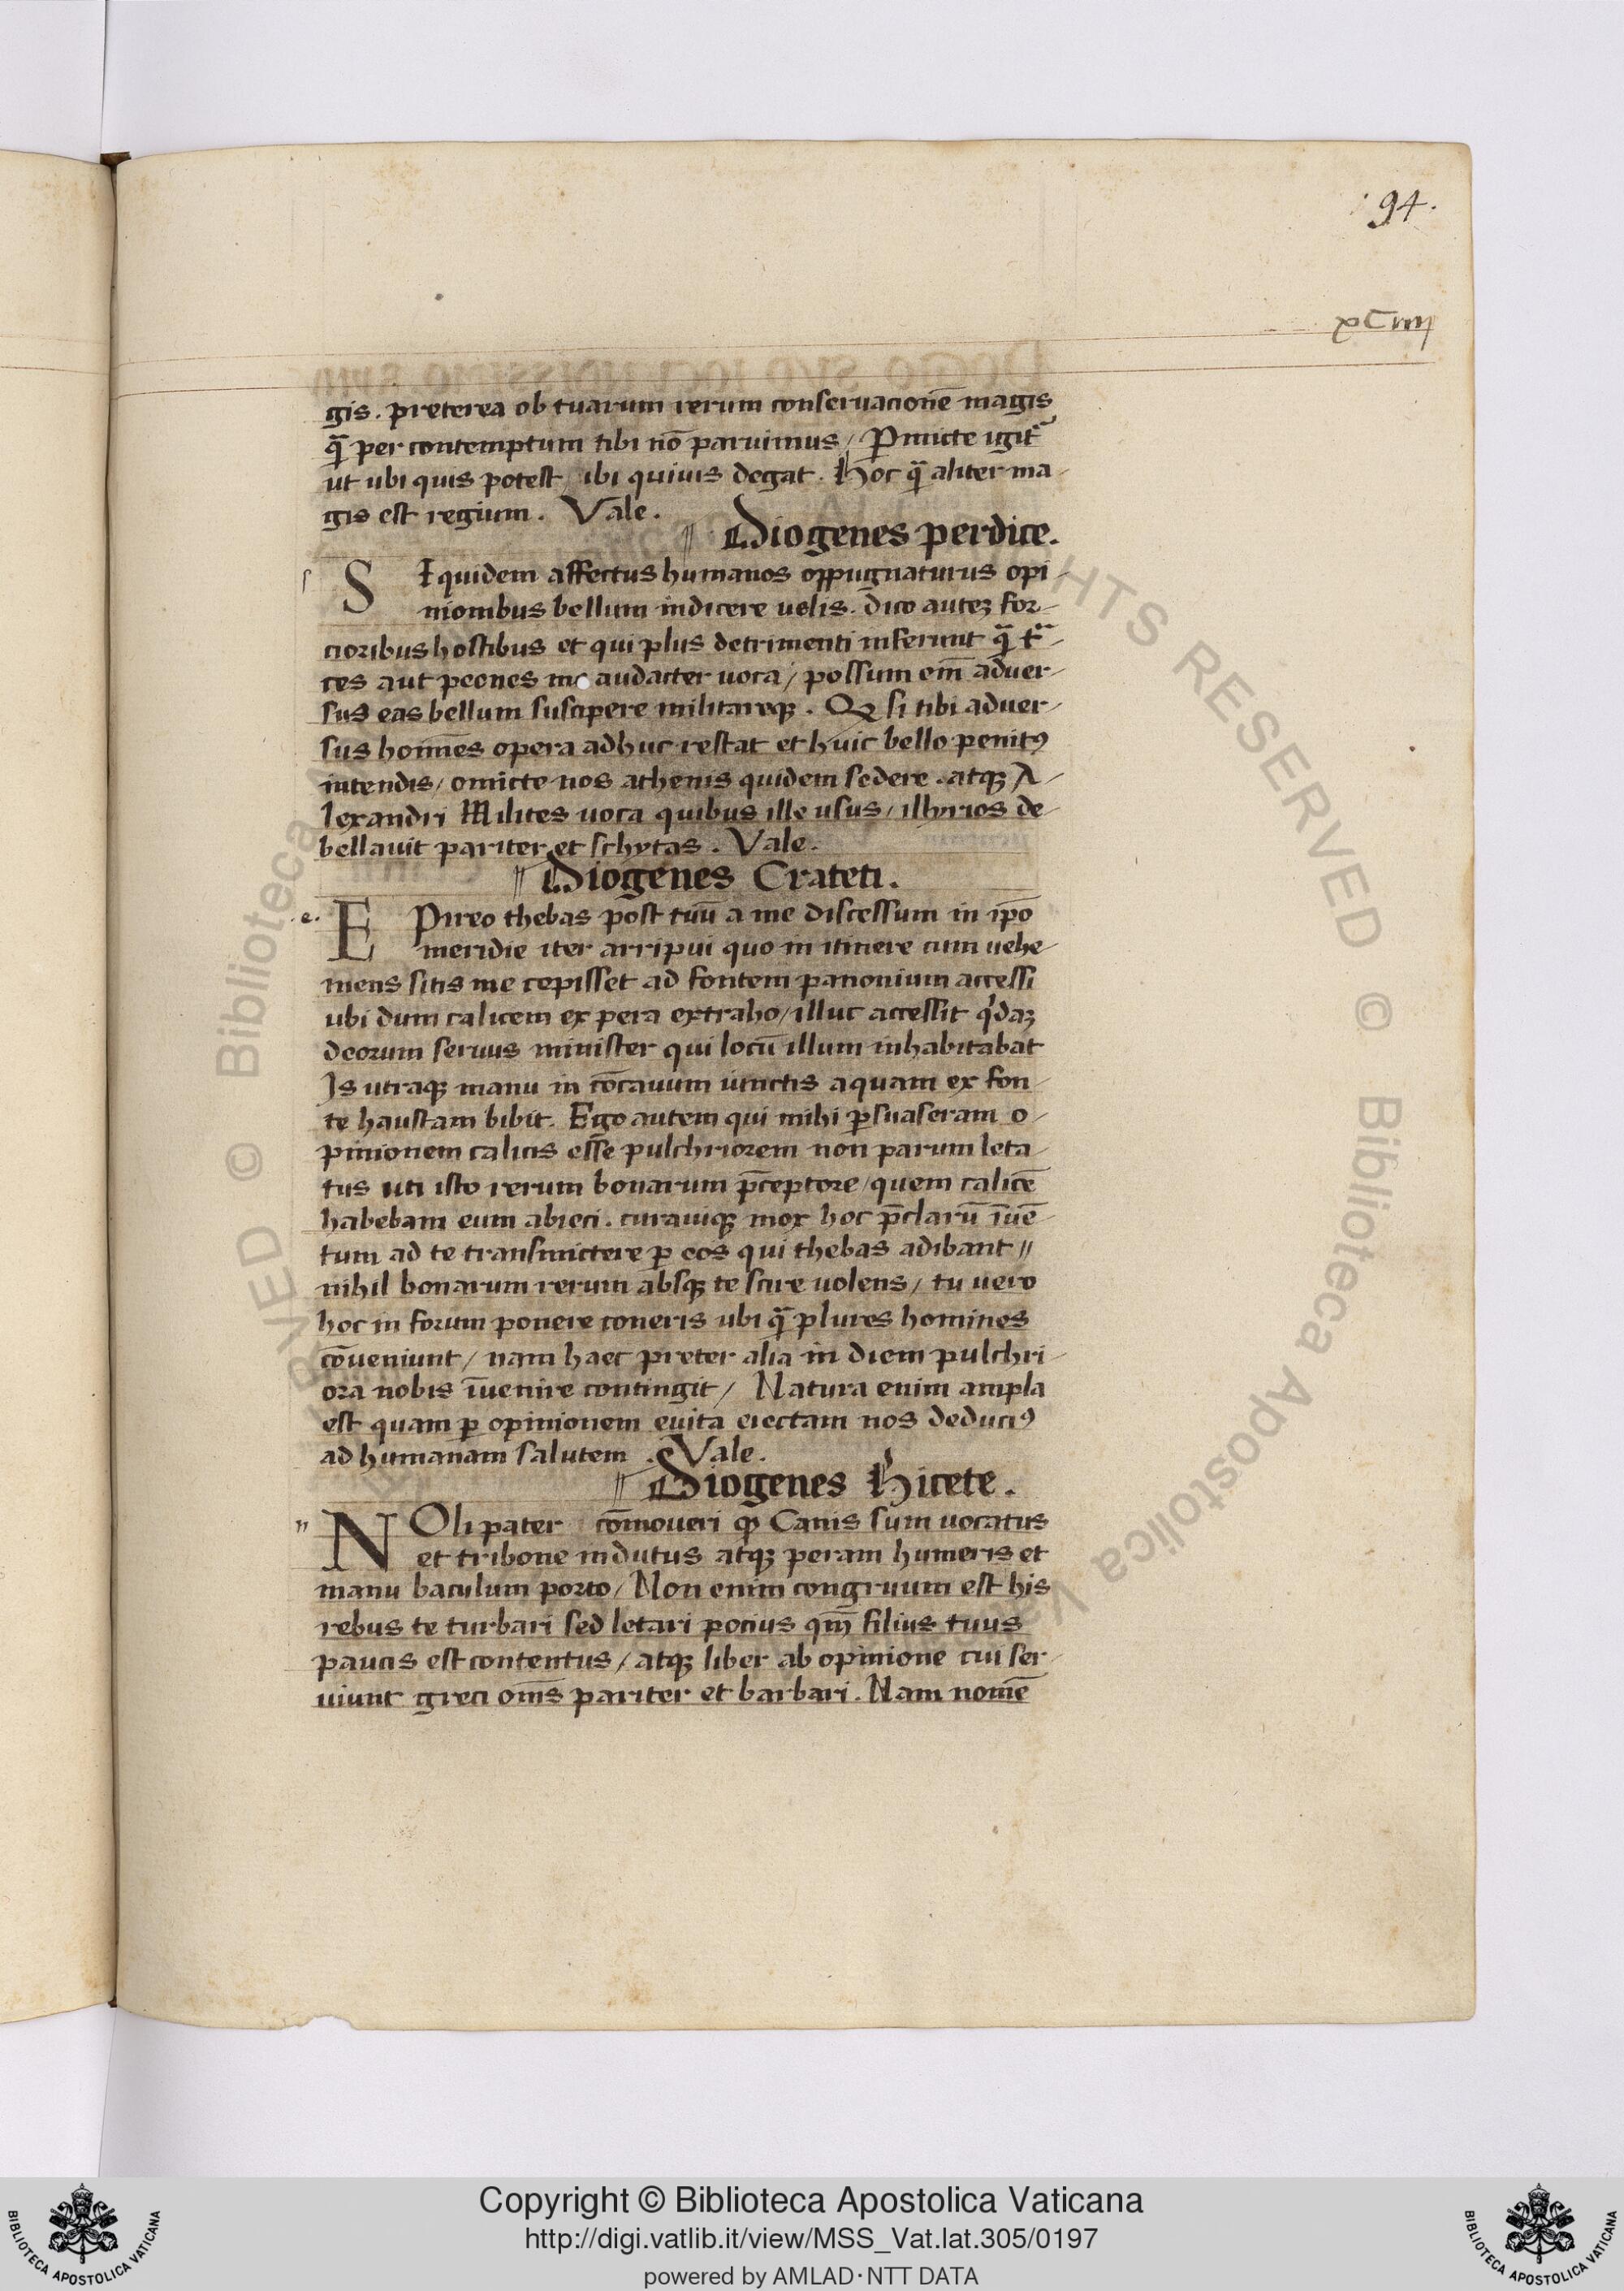 94.
xCiiij
gis. preterea ob tuarum rerum conseruacionē magis
q̄ per contemptum tibi nō paruimus / Pmicte igit᷑
ut ubi quis potest / ibi quiuis degat. Hoc q̄ aliter ma-
gis est regium. Vale.
Diogenes perdice.
s SIquidem affectus humanos oppugnaturus opi-
nionibus bellum indicere uelis. dico auteʒ for-
cioribus hostibus et qui plus detrimenti inferunt q̄ t᷑-
ces aut peones me audacter uoca / possum em̄ aduer-
sus eas bellum suscipere militareqʒ. Qꝫ si tibi aduer-
sus hom̄es opera adhuc restat et huic bello penitꝰ
intendis / omicte nos athenis quidem sedere. atqʒ A-
lexandri Milites uoca quibus ille usus / illyrios de-
bellauit pariter et schytas. Vale.
Diogenes Crateti.
e. EPireo thebas post tuū a me discessum in ip̄o
meridie iter arripui quo in itinere cum uehe-
mens sitis me cepisset ad fontem panonium accessi
ubi dum calicem ex pera extraho / illuc accessit qᷓdaʒ
deorum seruus minister qui locū illum inhabitabat
Is utraqʒ manu in cōcauum iunctis aquam ex fon-
te haustam bibit. Ego autem qui mihi ꝑsuaseram o-
pinionem calicis esse pulchriorem non parum leta-
tus uti isto rerum bonarum p̄ceptore / quem calicē
habebam eum abieci. curauiqʒ mox hoc p̄clarū īuē-
tum ad te transmictere ꝑ eos qui thebas adibant //
nihil bonarum rerum absqʒ te scire uolens / tu uero
hoc in forum ponere coneris ubi q̄ plures homines
cōueniunt / nam haec preter alia in diem pulchri-
ora nobis īuenire contingit / Natura enim ampla
est quam ꝑ opinionem euita eiectam nos deducimꝰ
ad humanam salutem. Vale.
Diogenes Hicete.
n NOli pater cōmoueri ꝙ Canis sum uocatus
et tribone indutus atqʒ peram humeris et
manu baculum porto / Non enim congruum est his
rebus te turbari sed letari pocius qm̄ filius tuus
paucis est contentus / atqʒ liber ab opinione cui ser-
uiunt greci om̄s pariter et barbari. Nam nomē
Copyright © Biblioteca Apostolica Vaticana
http://digi.vatlib.it/view/MSS_Vat.lat.305/0197
powered by AMLAD·NTT DATA
BIBLIOTECA APOSTOLICA VATICANA
BIBLIOTECA APOSTOLICA VATICANA